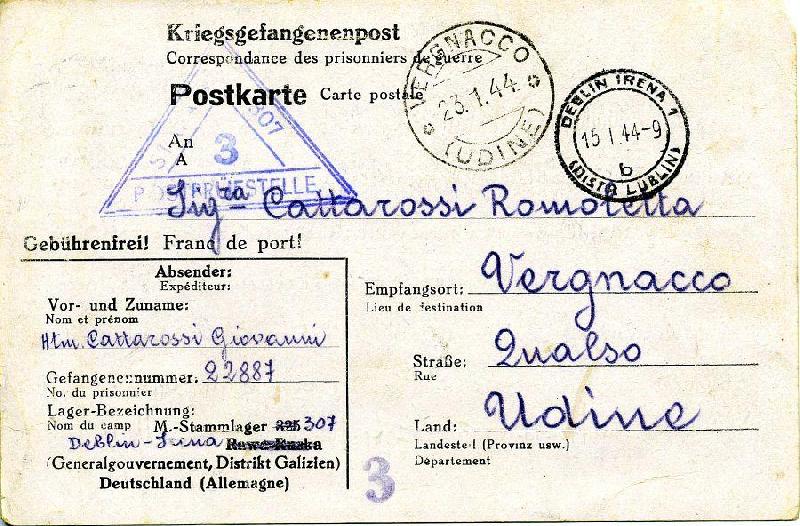 Kriegsgefangenenpost
Correspondance des prisonniers de guerre
Postkarte Carte postale
VERGNACCO
23.1.44
(UDINE)
DEBLIN IRENA 1
15 I 44-9
b
(DISTR LUBLIN)
An
A
STALAG 307
3
POSTPRÜFSTELLE
Sig.ra Cattarossi Romoletta
Gebührenfrei! Franc de port!
Absender:
Expéditeur:
Vor- und Zuname:
Nom et prénom
Htm. Cattarossi Giovanni
Gefangenennummer: 22887
No. du prisonnier
Lager-Bezeichnung:
Nom du camp M.-Stammlager 325 307
Deblin-Irina Rawa-Ruska
(Generalgouvernement, Distrikt Galizien)
Deutschland (Allemagne)
Empfangsort: Vergnacco
Lieu de destination
Straße: Qualso
Rue
Land: Udine
Landesteil (Provinz usw.)
Département
3